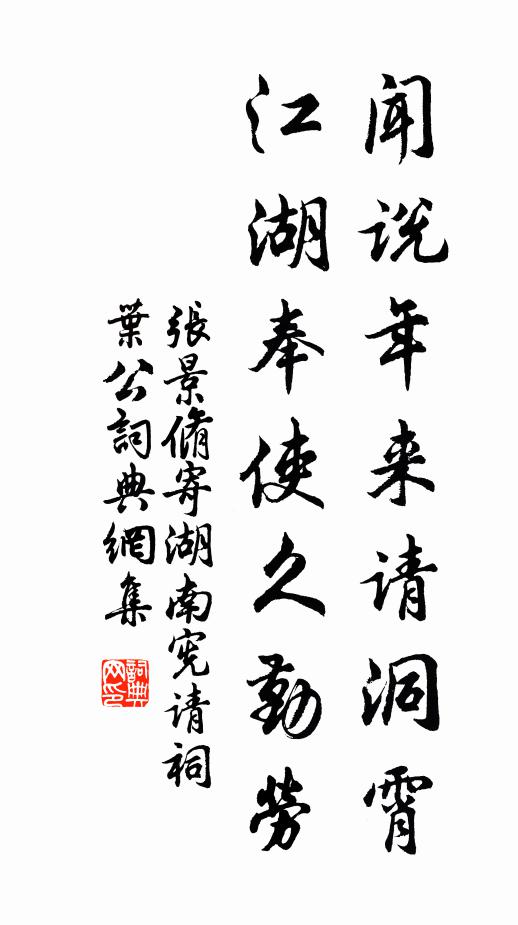 闻说年来请洞霄
江湖奉使久勤劳
張景脩寄湖南宪请祠
葉公詞典網集
詞典网印